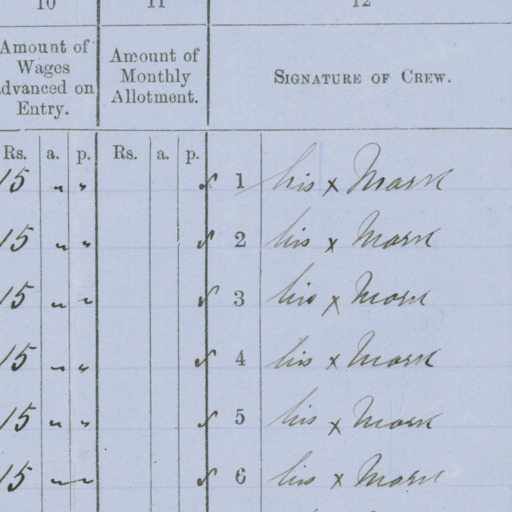 10 11 12
Amount of Wages advanced on Entry. Amount of Monthly Allotment. SIGNATURE OF CREW.
Rs. a. p. Rs. a. p.
15 " " 1 his x Mark
15 " " 2 his x Mark
15 " " 3 his x Mark
15 " " 4 his x Mark
15 " " 5 his x Mark
15 " " 6 his x Mark